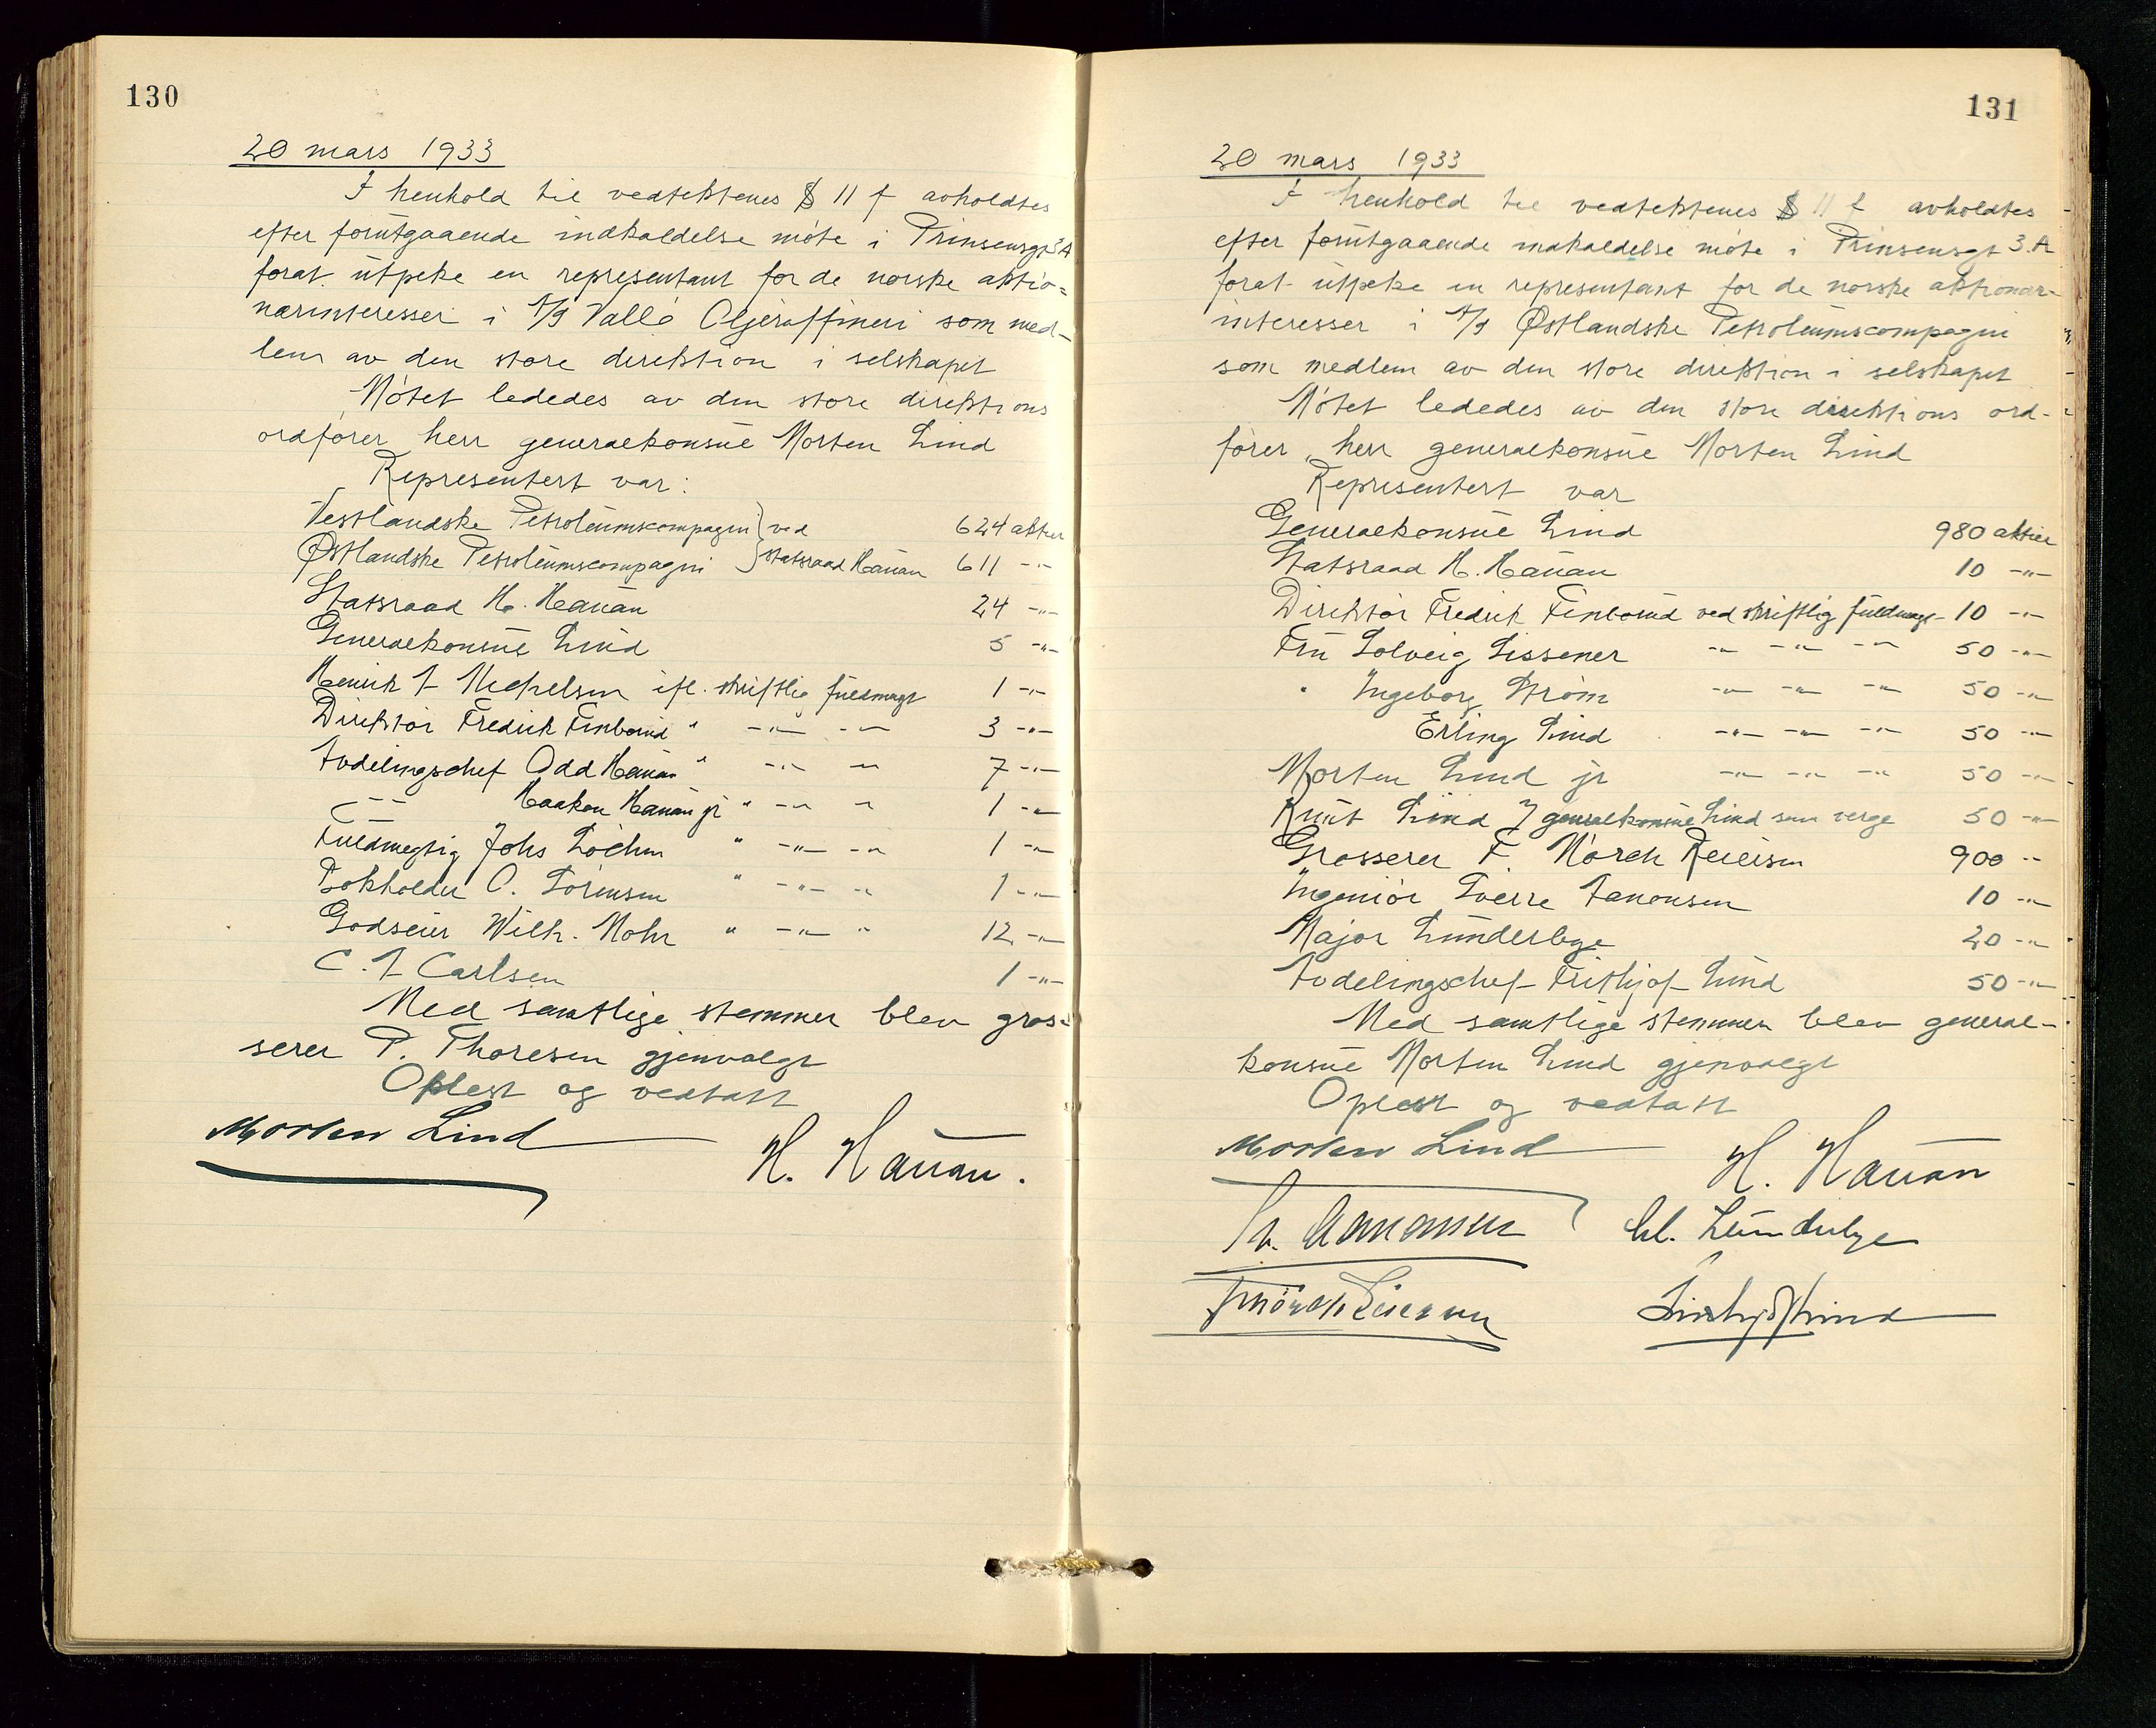 130
20 mars 1933
I henhold til vedtektenes § 11 f avholdtes
efter forutgaaende indkaldelse møte i Prinsensgt 3A
forat utpeke en representant for de norske aktio=
nærinteresser i A/S Vallø Oljeraffineri som med-
lem av den store direktion i selskapet
Møtet lededes av den store direktions
ordfører, herr generalkonsul Morten Lind
Representert var:
Vestlandske Petroleumscompagni } ved 624 aktier
Østlandske Petroleumscompagni } statsraad Hauan 611 -"-
Statsraad H. Hauan 24 -"-
Generalkonsul Lind 5 -"-
Henrik J Michelsen ifl. skriftlig fuldmagt 1 -"-
Direktør Fredrik Finborud " -"- -"- 3 -"-
Avdelingschef Odd Hauan " -"- -"- 7 -"-
-"- Haakon Hauan jr " -"- " 1 -"-
Fuldmegtig Johs Lochen " -"- -"- 1 -"-
Bokholder O. Sørensen " -"- -"- 1 -"-
Godseier Wilh. Mohr " -"- " 12 -"-
C. A Carlsen 1 -"-
Med samtlige stemmer blev gros=
serer P. Thoresen gjenvalgt
Oplest og vedtatt
Morten Lind H. Hauan.
131
20 mars 1933
I henhold til vedtektenes § 11 f avholdtes
efter forutgaaende indkaldelse møte i Prinsensgt 3.A
forat utpeke en representant for de norske aktionær-
interesser i A/S Østlandske Petroleumscompagni
som medlem av den store direktion i selskapet
Møtet lededes av den store direktions ord-
fører, herr generalkonsul Morten Lind
Representert var
Generalkonsul Lind 980 aktier
Statsraad H. Hauan 10 -"-
Direktør Fredrik Finborud ved skriftlig fuldmagt 10 -"-
Fru Solveig Lissener -"- -"- -"- 50 -"-
" Ingeborg Strøm -"- -"- -"- 50 -"-
Erling Lind -"- -"- -"- 50 -"-
Morten Lind jr -"- -"- -"- 50 -"-
Knut Lind } generalkonsul Lind som verge 50 -"-
Grosserer F. Mørch Reiersen 900 -"-
Ingeniør Sverre Aanonsen 10 -"-
Major Lunderbye 20 -"-
Avdelingschef Frithjof Lind 50 -"-
Med samtlige stemmer blev general-
konsul Morten Lind gjenvalgt
Oplest og vedtatt
Morten Lind H. Hauan
Sv. Aanonsen Lunderbye
F Mørch Reiersen Frithjof Lind